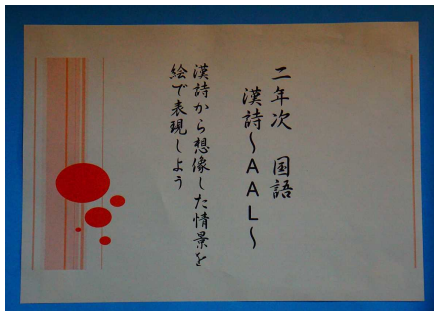 二年次　国語
漢詩～AAL～
漢詩から想像した情景を
絵で表現しよう